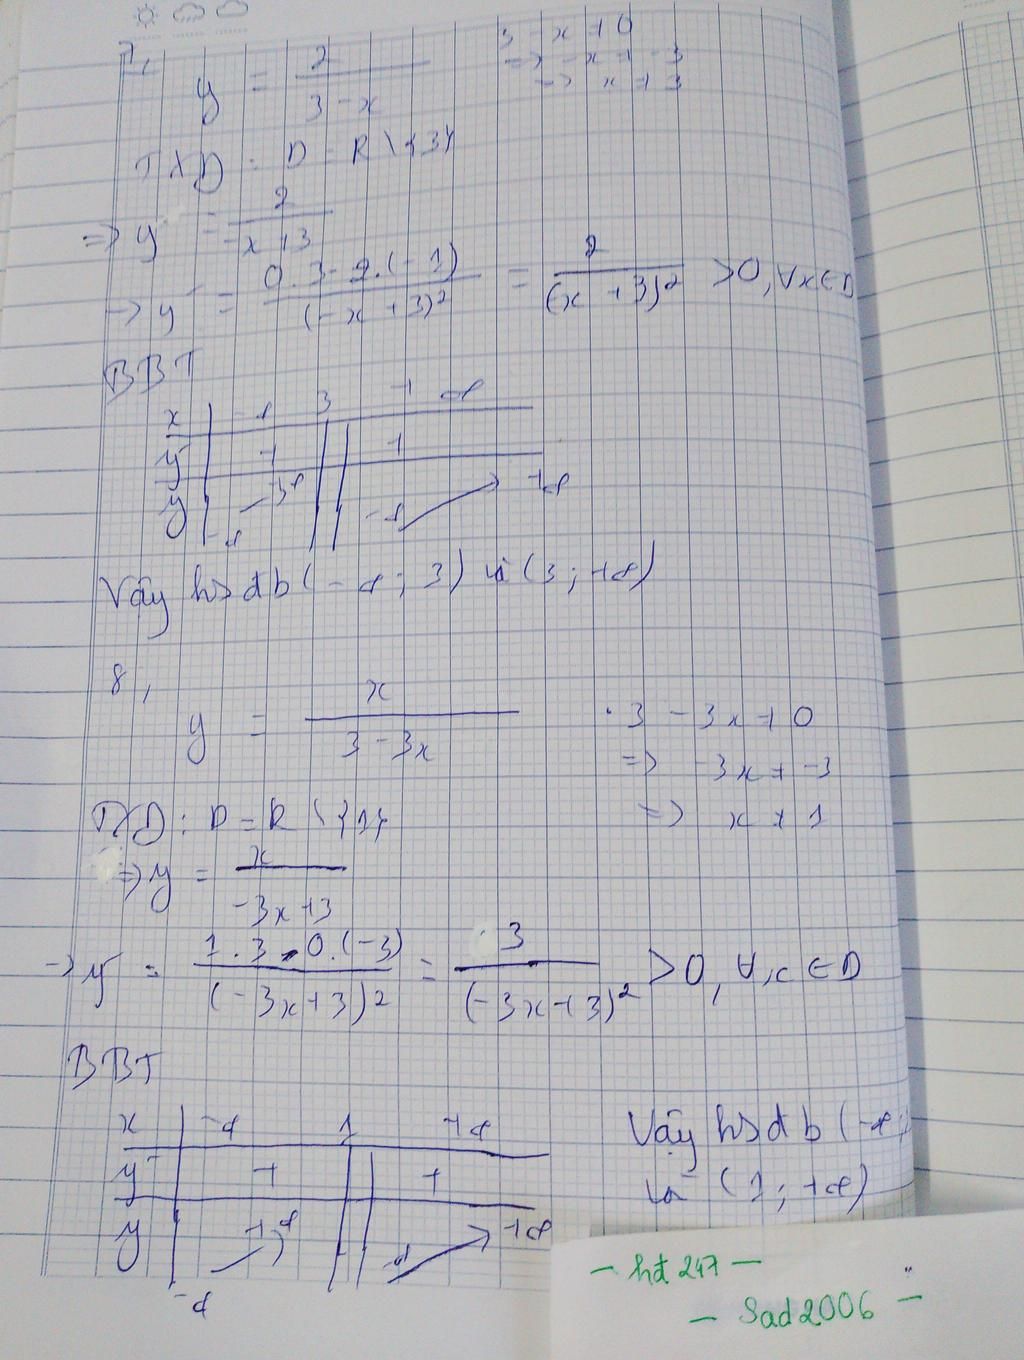 7,
y = 2 / (3 - x)
3 - x ≠ 0
=> -x ≠ -3
=> x ≠ 3
TXD : D = R \ {3}
=> y = 2 / (-x + 3)
=> y' = (0.3 - 2.(-1)) / (-x + 3)² = 2 / (-x + 3)² > 0, ∀x ∈ D
BBT
x | -∞ 3 +∞
y' | + || +
y | -∞ +∞ || -∞ +∞
Vậy hs đb (-∞ ; 3) và (3 ; +∞)
8,
y = x / (3 - 3x)
. 3 - 3x ≠ 0
=> -3x ≠ -3
=> x ≠ 1
TXD : D = R \ {1}
=> y = x / (-3x + 3)
=> y' = (1.3 - 0.(-3)) / (-3x + 3)² = 3 / (-3x + 3)² > 0, ∀x ∈ D
BBT
x | -∞ 1 +∞
y' | + || +
y | -∞ +∞ || -∞ +∞
Vậy hs đb (-∞ ;
và (1 ; +∞)
- hđ 247 -
- Sad2006 -